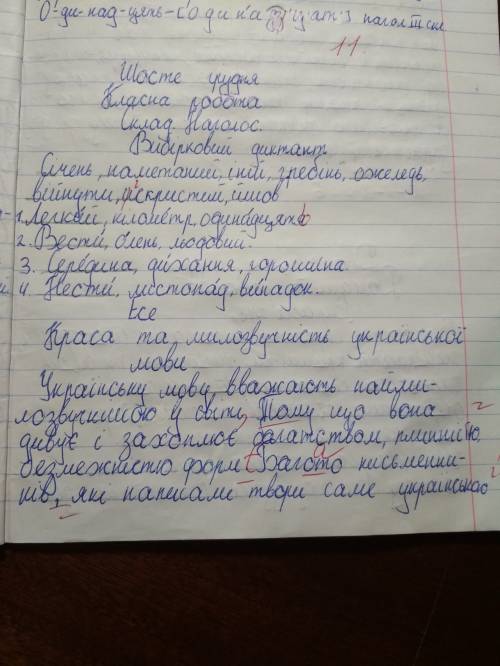 О-ди-над-цять-[о д и н а д ц ат з] наголос
11.
Шосте грудня
Класна робота
Склад. Наголос.
Вибірковий диктант
Січень, наметаний, іній, гребінь, ожеледь,
війнути, іскристий, йшов
1. Легкий, кілометр, одинадцять
2. Вести, олень, людовий.
3. Середина, дихання, горошина
4. Нести, листопад, випадок.
Есе
Краса та милозвучність української
мови
Українську мову вважають найми-
лозвучнішою у світі, Тому що вона
дивує і захоплює флагатством, плинністю,
безмежністю форм. Багато письменни-
ків, які написали твори саме українською